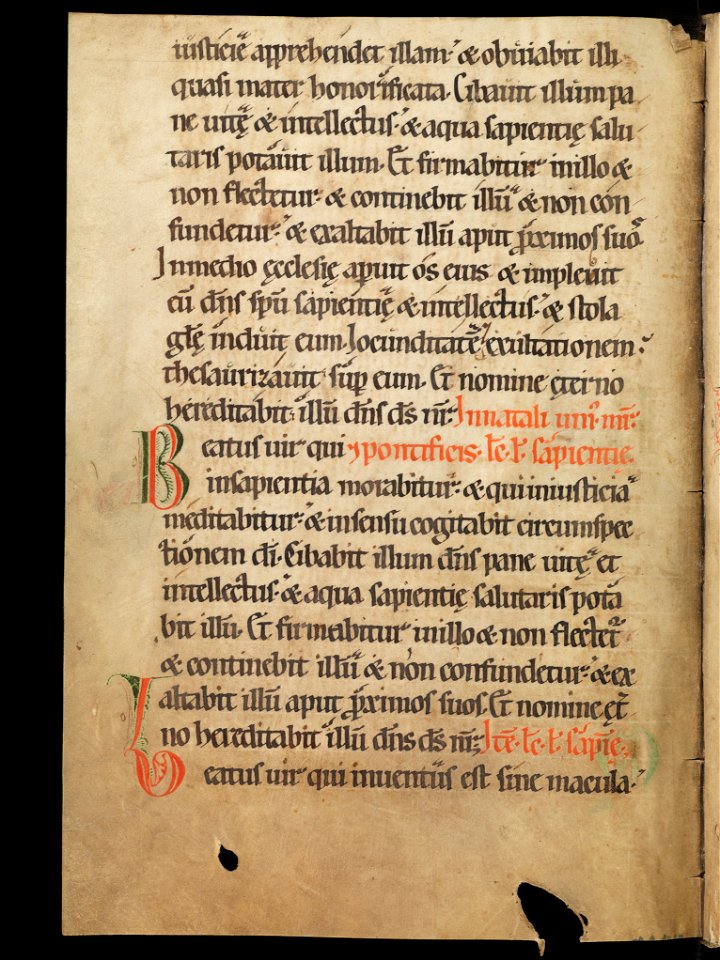 iusticię apprehendet illam. & obuiabit illi
quasi mater honorificata. Cibauit illum pa
ne uitę & intellectus. & aqua sapientię salu
taris potauit illum. Et firmabitur inillo &
non flectetur. & continebit illū & non con
fundetur. & exaltabit illū aput ꝓximos suos
Inmedio ęcclesię aperuit os eius & impleuit
eū dn̄s spū sapientię & intellectus. & stola
glę induit eum. Iocunditatē & exultationem
thesaurizauit sup eum. Et nomine ęterno
hereditabit illū dn̄s ds̄ nr̄. Innatali uni' mr̄
Beatus uir qui & pontificis. lc̄. l. sapientię.
insapientia morabitur. & qui iniusticia
meditabitur. & insensu cogitabit circumspec
tionem dī. Cibabit illum dn̄s pane uitę et
intellectus. & aqua sapientię salutaris pota
bit illū. Et firmabitur inillo & non flectet᷑
& continebit illū & non confundetur. & ex
altabit illū aput ꝓximos suos. Et nomine ęt̄
no hereditabit illū dn̄s ds̄ nr̄. Itē. lc̄. l. sapię.
Beatus uir qui inuentus est sine macula.